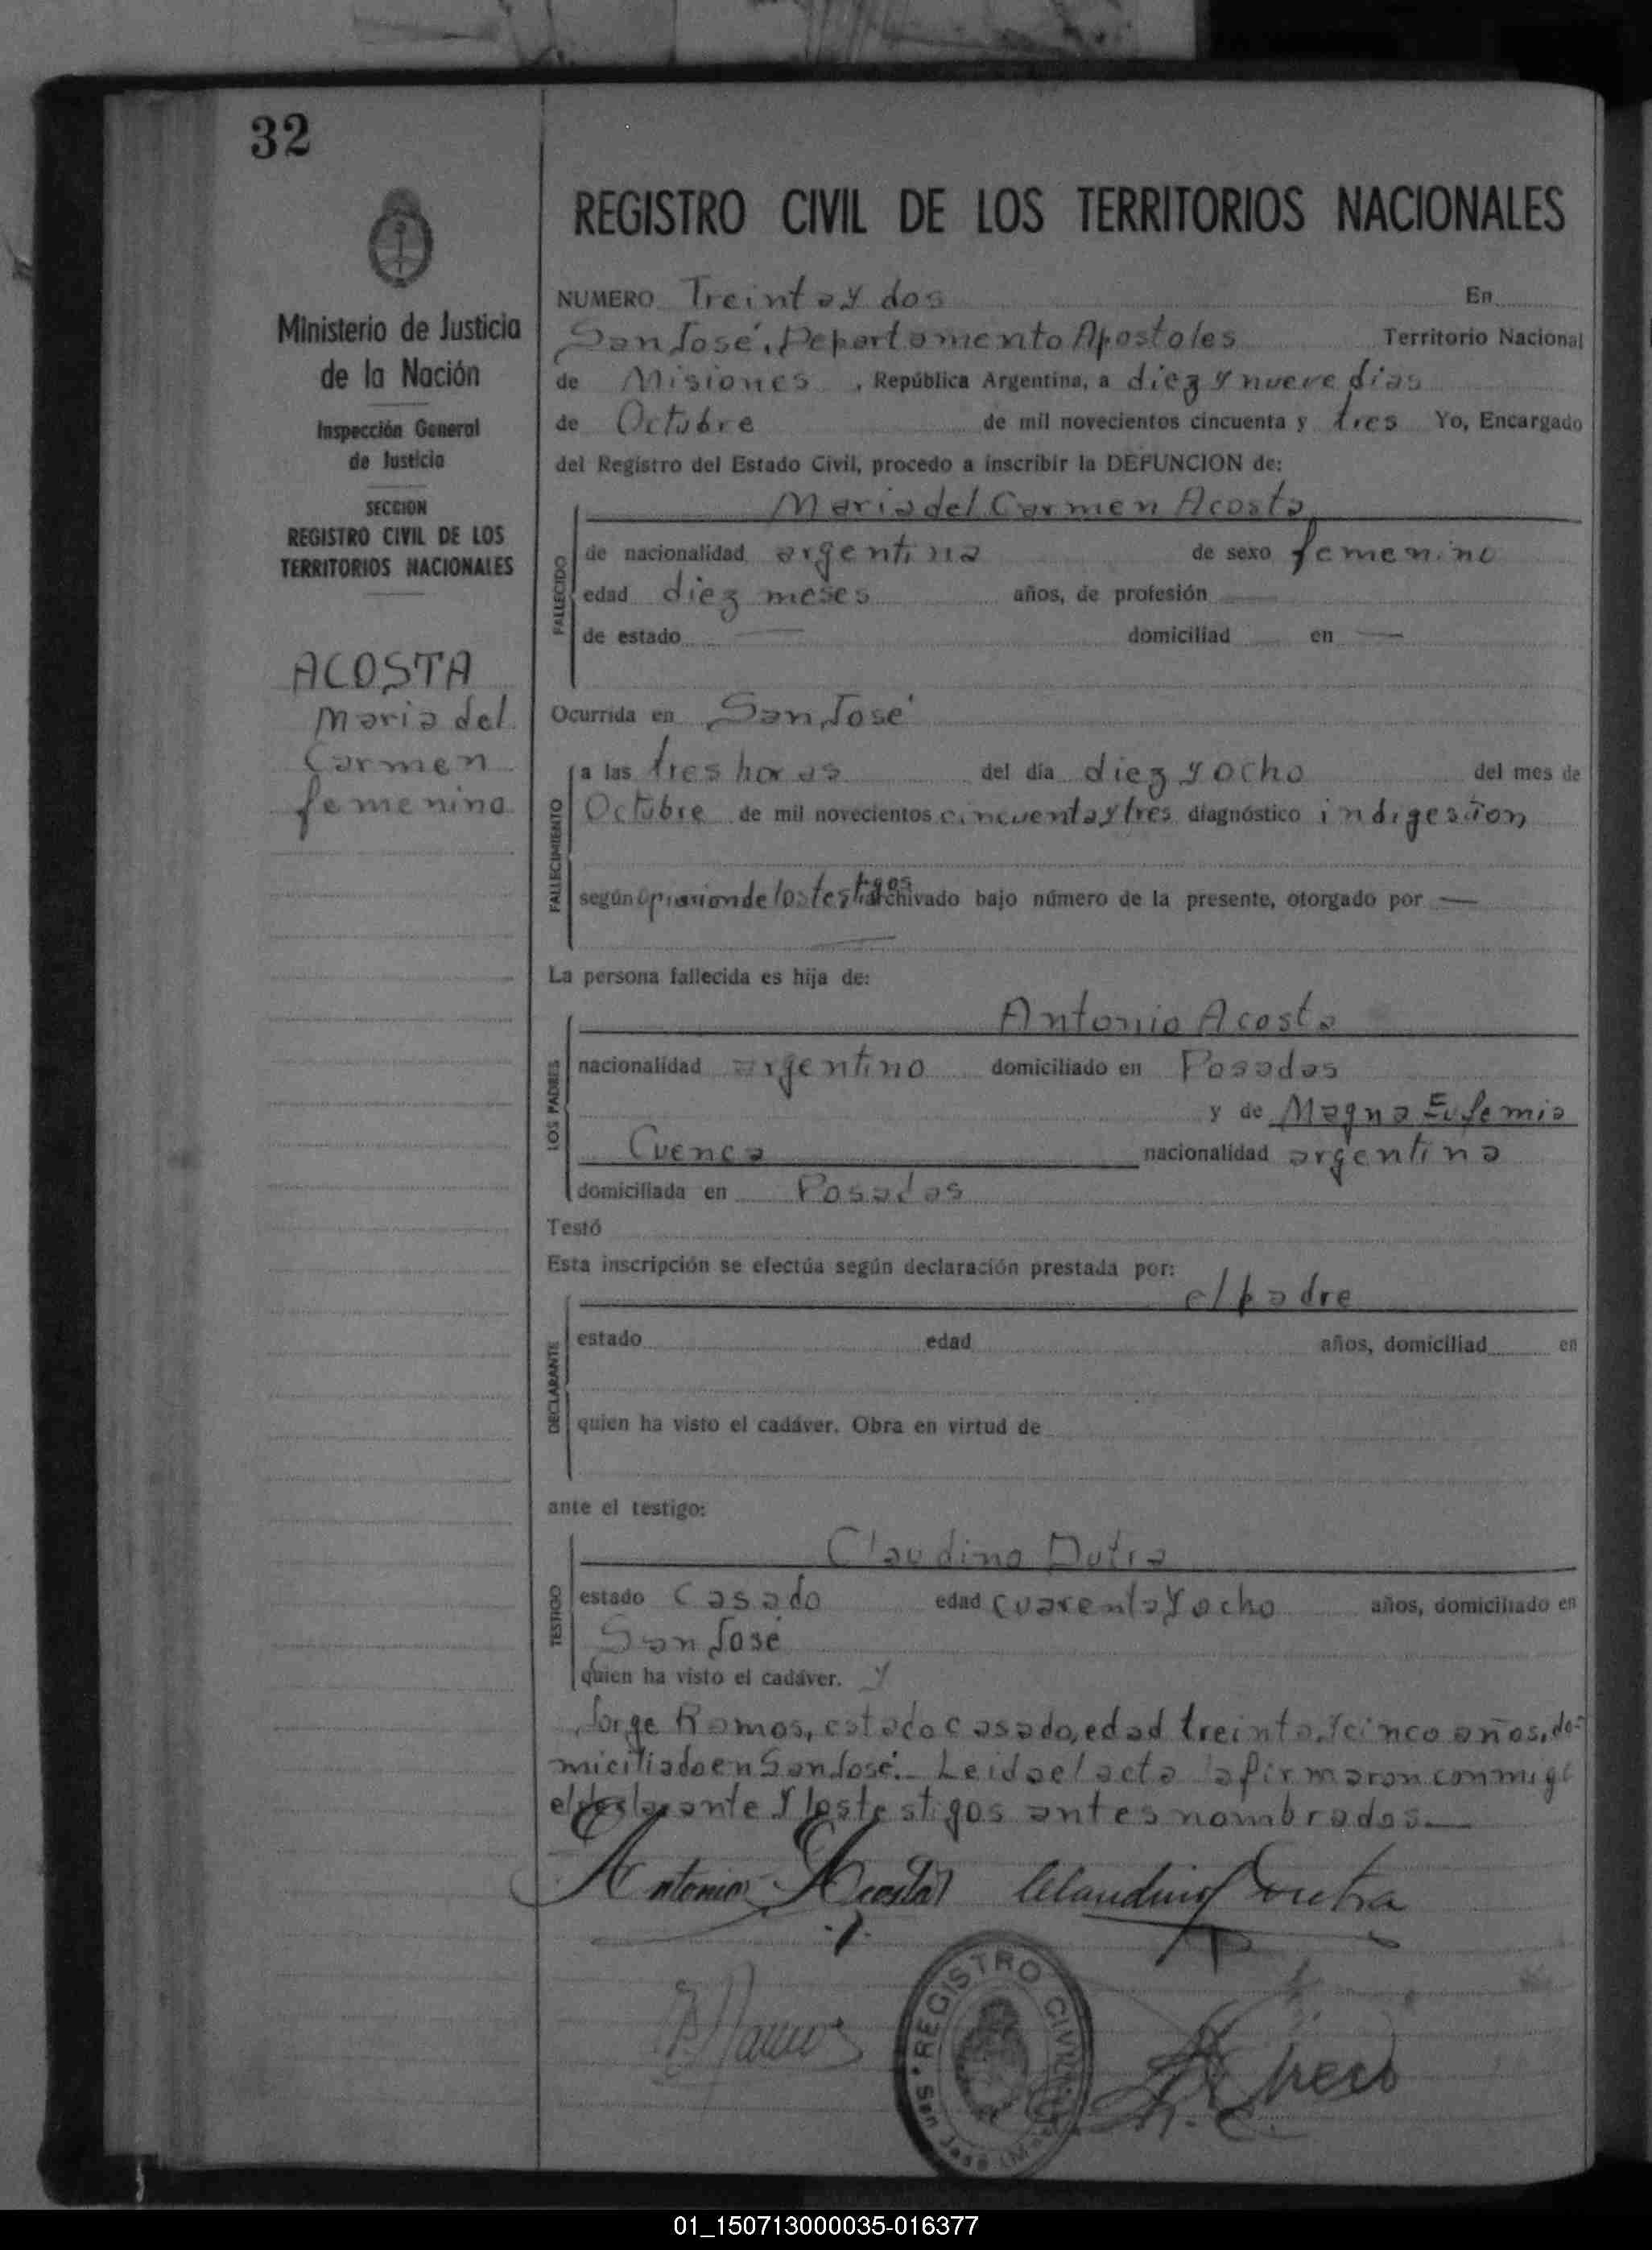 32
Ministerio de Justicia
de la Nación
Inspección General
de Justicia
SECCION
REGISTRO CIVIL DE LOS
TERRITORIOS NACIONALES
ACOSTA
Maria del
Carmen
femenino
REGISTRO CIVIL DE LOS TERRITORIOS NACIONALES
NUMERO Treinta y dos En
San José, Departamento Apostoles Territorio Nacional
de Misiones, República Argentina, a diez y nueve dias
de Octubre de mil novecientos cincuenta y tres Yo, Encargado
del Registro del Estado Civil, procedo a inscribir la DEFUNCION de:
Maria del Carmen Acosta
FALLECIDO
de nacionalidad argentina de sexo femenino
edad diez meses años, de profesión —
de estado — domiciliad en —
Ocurrida en San José
FALLECIMIENTO
a las tres horas del día diez y ocho del mes de
Octubre de mil novecientos cincuenta y tres diagnóstico indigestion
según opinion de los testigos archivado bajo número de la presente, otorgado por —
La persona fallecida es hija de:
Antonio Acosta
LOS PADRES
nacionalidad argentino domiciliado en Posadas
y de Magna Eufemia
Cuenca nacionalidad argentina
domiciliada en Posadas
Testó
Esta inscripción se efectúa según declaración prestada por:
el padre
DECLARANTE
estado edad años, domiciliad en
quien ha visto el cadáver. Obra en virtud de
ante el testigo:
Claudino Dutra
TESTIGO
estado casado edad cuarenta y ocho años, domiciliado en
San José
quien ha visto el cadáver. y
Jorge Ramos, estado casado, edad treinta y cinco años, do-
miciliado en San José.- Leida el acta la firmaron conmigo
el declarante y los testigos antes nombrados.—
Antonio Acosta Claudino Dutra
Ramos
REGISTRO CIVIL
San José (Mnes)
01_150713000035-016377